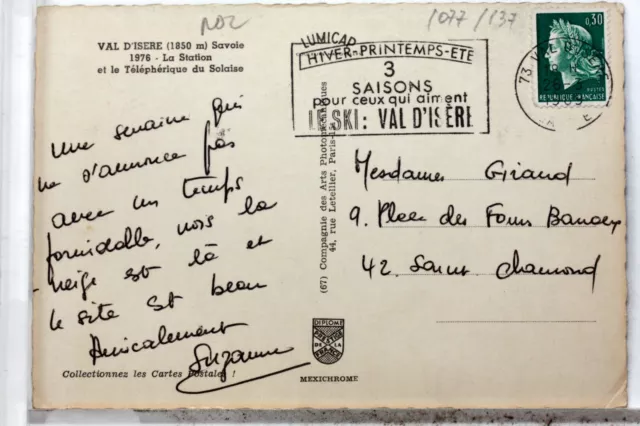 NOZ
1077/137
VAL D'ISERE (1850 m) Savoie
1976 - La Station
et le Téléphérique du Solaise
LUMICAP
HIVER-PRINTEMPS-ETE
3
SAISONS
pour ceux qui aiment
LE SKI: VAL D'ISÈRE
0,30
POSTES
REPUBLIQUE FRANÇAISE
73 VAL D'ISERE
Une semaine qui
ne s'annonce pas
avec un temps
formidable, mais la
neige est là et
le site est beau
Amicalement
Suzanne
Collectionnez les Cartes Postales !
(67) Compagnie des Arts Photomécaniques
44, rue Letellier, Paris-15e
DIPLOME
PRESTIGE
DE LA
FRANCE
MEXICHROME
Mesdames Giraud
9. Place des Fours Banaux
42. Saint Chamond